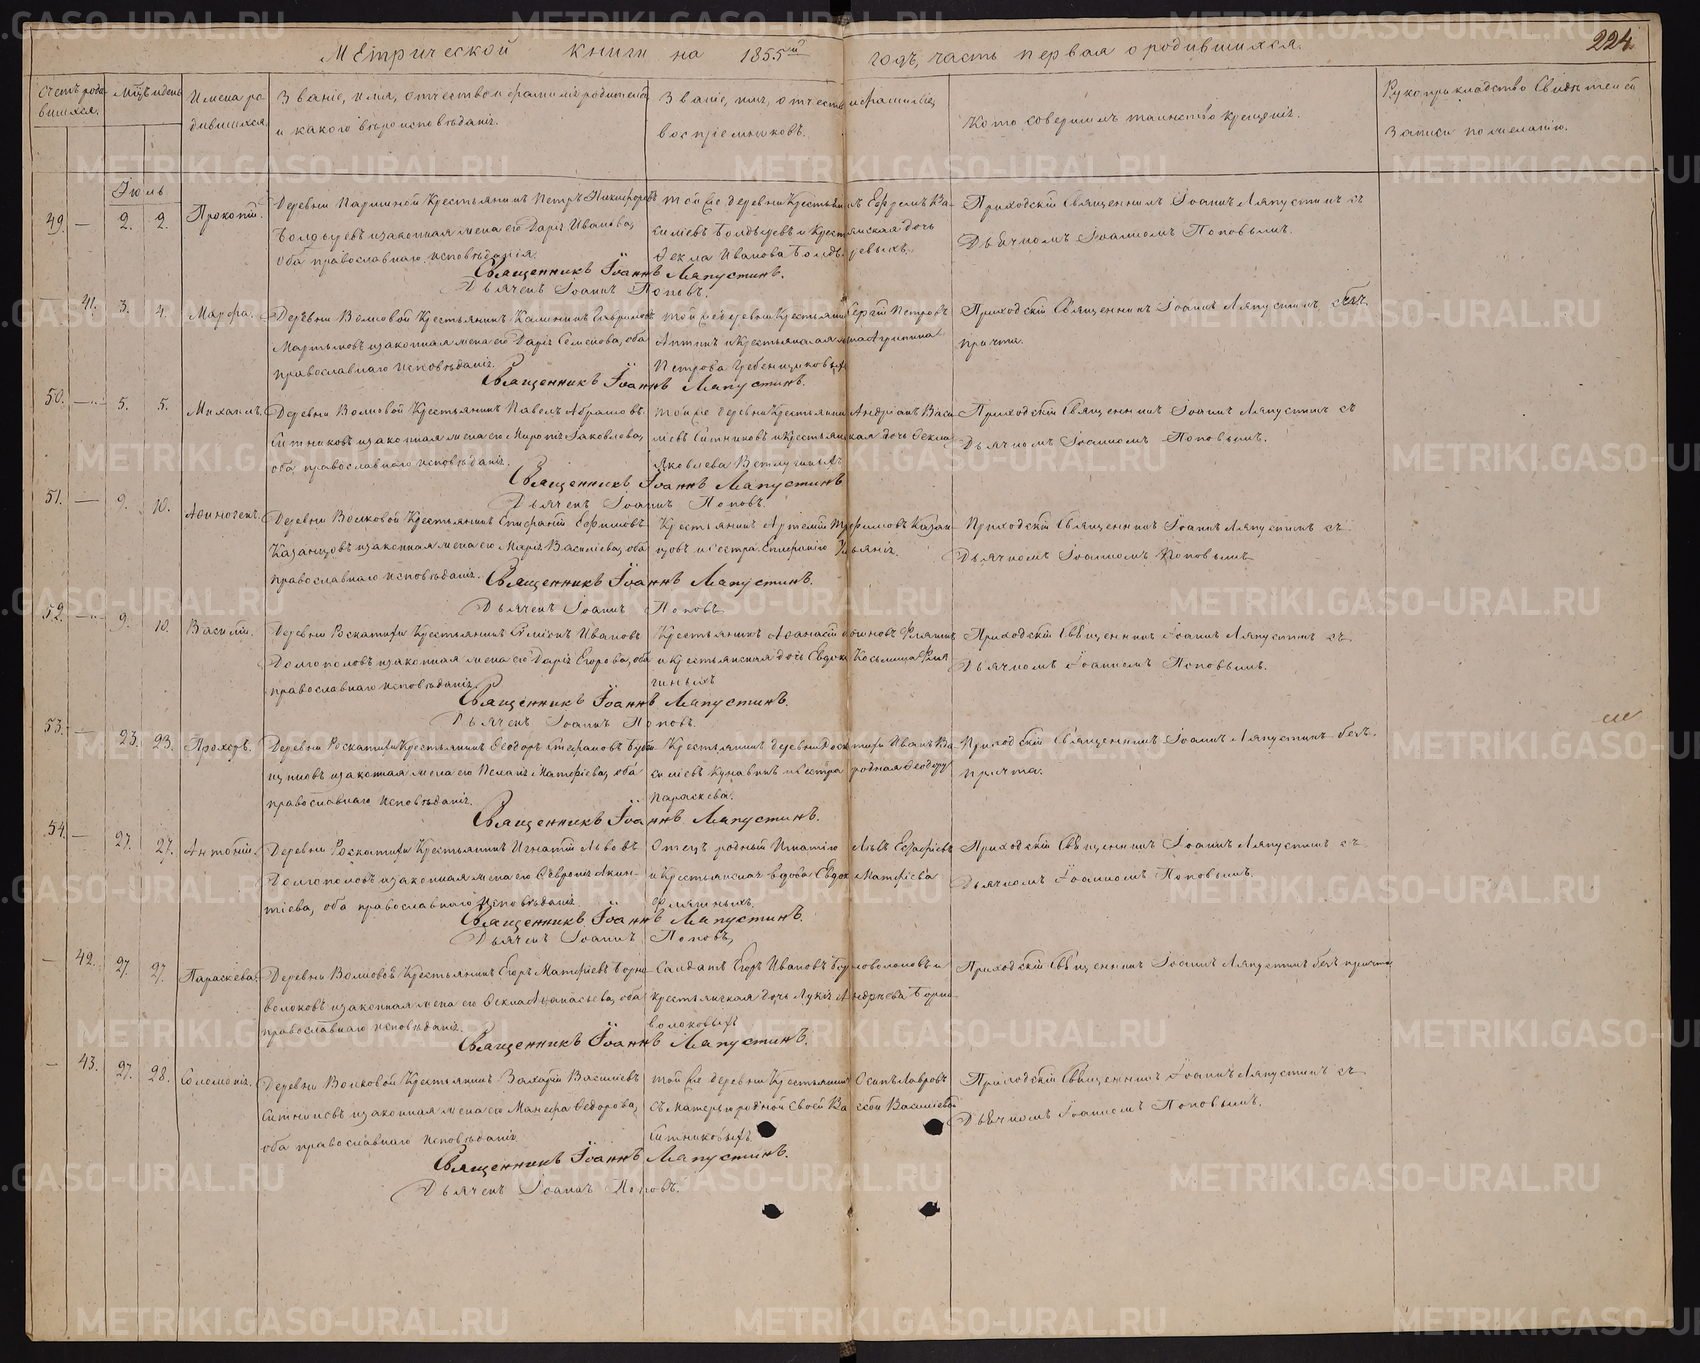 Метрической книги на 1855й годъ, часть первая о родившихся.
224.
Счетъ родившихся.
Мцъ и день
Имена родившихся.
Званіе, имя, отчество и фамилія родителей
и какого вѣроисповѣданія.
Званіе, имя, отчество и фамилія
воспріемниковъ.
Кто совершилъ таинство крещенія.
Рукоприкладство свидѣтелей
записи по желанію.
Іюль
49. — 2. 2. Прокопій.
Деревни Крестьянинъ Петръ Никифоровъ
Болдыревъ и законная жена его Дарія Иванова,
оба православнаго исповѣданія.
той же деревни Крестьянинъ Ефремъ Ва-
силіевъ Болдыревъ и Крестьянская дочь
Фекла Иванова Болдыревыхъ.
Приходскій Священникъ Іоаннъ Ляпустинъ съ
Дьячкомъ Іоанномъ Поповымъ.
Священникъ Іоаннъ Ляпустинъ.
Дьячекъ Іоаннъ Поповъ.
41. 3. 4. Марфа.
Деревни Волковой Крестьянинъ Калинникъ Гавриловъ
Мартыновъ и законная жена его Дарія Семенова, оба
православнаго исповѣданія.
той же деревни Крестьянинъ Сергій Петровъ
и Крестьянская жена Агрипина
Петрова Гребенщиковыхъ
Приходскій Священникъ Іоаннъ Ляпустинъ безъ
причта.
Священникъ Іоаннъ Ляпустинъ.
50. — 5. 5. Михаилъ.
Деревни Волковой Крестьянинъ Павелъ Абрамовъ
Ситниковъ и законная жена его Яковлева,
оба православнаго исповѣданія.
той же деревни Крестьянинъ Андріанъ Васи-
ліевъ Ситниковъ и Крестьянская дочь Фекла
Яковлева Ветлугиныхъ
Приходскій Священникъ Іоаннъ Ляпустинъ съ
Дьячкомъ Іоанномъ Поповымъ.
Священникъ Іоаннъ Ляпустинъ
Дьячекъ Іоаннъ Поповъ.
51. — 9. 10. Афиногенъ.
Деревни Волковой Крестьянинъ Епифаній Ефимовъ
Казанцовъ и законная жена его Марія Василіева, оба
православнаго исповѣданія.
Крестьянинъ Артемій Казан-
цовъ и сестра Епифанію
Приходскій Священникъ Іоаннъ Ляпустинъ съ
Дьячкомъ Іоанномъ Поповымъ
Священникъ Іоаннъ Ляпустинъ.
Дьячекъ Іоаннъ Поповъ
52. — 9. 10. Василій.
Деревни Роскатихи Крестьянинъ Ивановъ
Долгополовъ и законная жена его Дарія Егорова, оба
православнаго исповѣданія.
Крестьянинъ Афанасій
и крестьянская дочь Козьмина
гиныхъ
Приходскій Священникъ Іоаннъ Ляпустинъ съ
Дьячкомъ Іоанномъ Поповымъ.
Священникъ Іоаннъ Ляпустинъ.
Дьячекъ Іоаннъ Поповъ.
53. — 23. 23. Прохоръ.
Деревни Роскатихи Крестьянинъ Феодоръ Стефановъ
и законная жена его Пелагія Матфіева, оба
православнаго исповѣданія.
Крестьянинъ деревни Роскатихи Иванъ Ва-
силіевъ Кунавинъ и сестра родная Феодору
Параскева.
Приходскій Священникъ Іоаннъ Ляпустинъ безъ
причта.
Священникъ Іоаннъ Ляпустинъ.
54. — 27. 27. Антоній.
Деревни Роскатихи Крестьянинъ Игнатій Львовъ
Долгополовъ и законная жена его Февронія Акин-
тіева, оба православнаго исповѣданія.
Отецъ родный Игнатію Левъ
и Крестьянская вдова Матфіева
Приходскій Священникъ Іоаннъ Ляпустинъ съ
Дьячкомъ Іоанномъ Поповымъ.
Священникъ Іоаннъ Ляпустинъ.
Дьячекъ Іоаннъ Поповъ,
— 42. 27. 27. Параскева.
Деревни Волковой Крестьянинъ Егоръ Матфіевъ Борно-
волоковъ и законная жена его Фекла Афанасьева, оба
православнаго исповѣданія.
Солдатъ Егоръ Ивановъ Борноволоковъ и
крестьянская дочь Лукія Андреева Борно-
волоковыхъ
Приходскій Священникъ Іоаннъ Ляпустинъ безъ причта
Священникъ Іоаннъ Ляпустинъ.
— 43. 27. 28. Соломонія.
Деревни Волковой Крестьянинъ Захарій Василіевъ
Ситниковъ и законная жена его Федорова,
оба православнаго исповѣданія.
той же деревни Крестьянинъ Осипъ Лавровъ
съ матерью родной своей Василіевой
Ситниковыхъ
Приходскій Священникъ Іоаннъ Ляпустинъ съ
Дьячкомъ Іоанномъ Поповымъ.
Священникъ Іоаннъ Ляпустинъ.
Дьячекъ Іоаннъ Поповъ.
METRIKI.GASO-URAL.RU